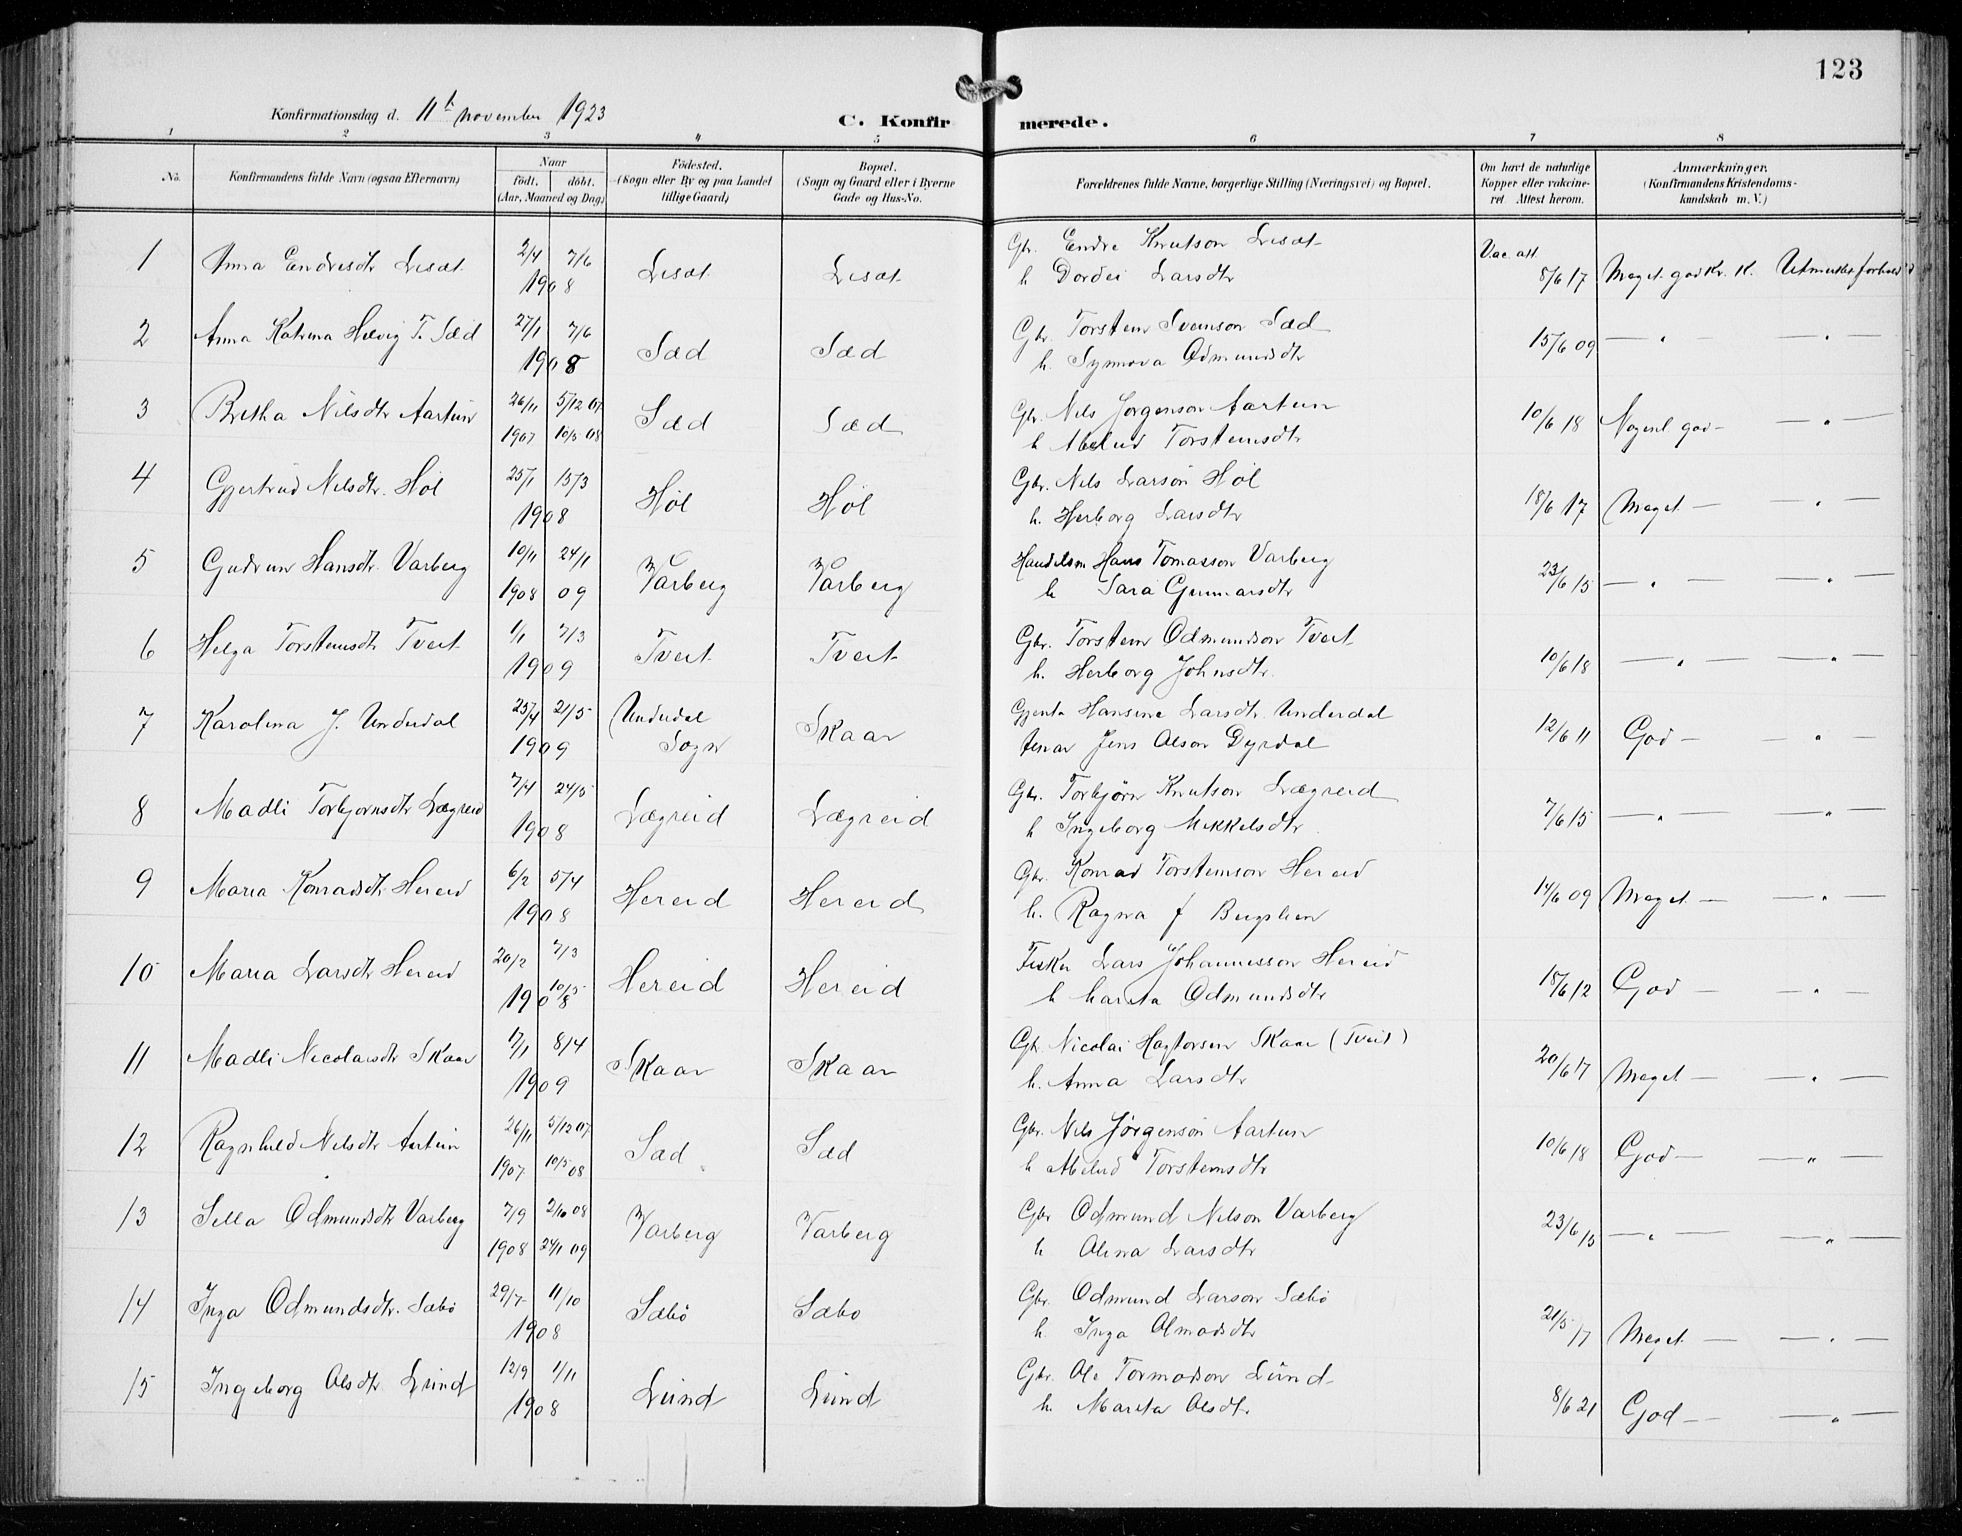 123
Konfirmationsdag d. 11te november 1923
C. Konfirmerede.
1 2 3 4 5 6 7 8
No.
Konfirmandens fulde Navn (ogsaa Efternavn)
Naar
födt. döbt.
(Aar, Maaned og Dag)
Födested.
(Sogn eller By og paa Landet
tillige Gaard)
Bopæl.
(Sogn og Gaard eller i Byerne
Gade og Hus-No.
Forældrenes fulde Navne, borgerlige Stilling (Næringsvei) og Bopæl.
Om havt de naturlige
Kopper eller vakcine-
ret. Attest herom.
Anmærkninger.
(Konfirmandens Kristendoms-
kundskab m. V.)
1 Anna Endresdtr Lisæt 2/4 7/6 1908 Lisæt Lisæt
Gbr. Endre Knutson Lisæt
h Dordei Larsdtr
Vac. att 8/6 17 Meget god Kr. K.
2 Anna Katrina Hævig T. Sæd 27/1 7/6 1908 Sæd Sæd
Gbr. Torstein Sveinson Sæd
h. Synnova Odmundsdtr
15/6 09 — " — — " —
3 Britha Nilsdtr Aartun 26/11 1907 5/12 07 10/5 08 Sæd Sæd
Gbr. Nils Jørgenson Aartun
h Torsteinsdtr
10/6 18 god — — " —
4 Gjertrud Nilsdtr. Høl 25/1 15/3 1908 Høl Høl
Gbr. Nils Larson Høl
h. Herborg Larsdtr
18/6 17 Meget — — " —
5 Gudrun Hansdtr. Varberg 10/11 1908 24/1 09 Varberg Varberg
Handelsm Hans Tomasson Varberg
h Sara Gunnarsdtr
23/6 15 — " — — " —
6 Helga Torsteinsdtr Tveit 1/1 7/3 1909 Tveit Tveit
Gbr. Torstein Odmundson Tveit
h. Herborg Johnsdtr.
10/6 18 — " — — " —
7 Karolina J. Underdal 25/4 21/5 1909 Underdal Sogn Skaar
Gjenta Hansine Larsdtr. Underdal
tenar Jens Olson Dyrdal
12/6 11 God — — " —
8 Madli Torbjornsdtr Lægreid 7/4 24/5 1908 Lægreid Lægreid
Gbr. Torbjörn Knutson Lægreid
h Ingeborg Mikkelsdtr.
7/6 15 — " — — " —
9 Maria Konradsdtr Hereid 6/2 5/4 1908 Hereid Hereid
Gbr. Konrad Torsteinson Hereid
h. Ragna f
14/6 09 Meget — — " —
10 Maria Larsdtr Hereid 20/2 7/3 10/5 1908 Hereid Hereid
Fisker Lars Johannesson Hereid
h Marita Odmundsdtr
18/6 12 God — — " —
11 Madli Nicolaisdtr Skaar 17/1 8/4 1909 Skaar Skaar
Gbr. Nicolai Hagtorsen Skaar (Tveit)
h. Anna Larsdtr
20/6 17 Meget — — " —
12 Ragnhild Nilsdtr Aartun 26/11 1907 5/12 07 10/5 08 Sæd Sæd
Gbr. Nils Jørgenson Aartun
h Torsteinsdtr
10/6 18 God — — " —
13 Sella Odmundsdtr Varberg 7/9 1908 2/10 08 24/1 09 Varberg Varberg
Gbr Odmund Nilson Varberg
h Alina Larsdtr
23/6 15 — " — — " —
14 Inga Odmundsdtr. Sæbö 29/7 11/10 1908 Sæbö Sæbo
Gbr. Odmund Larson Sæbö
h. Inga Olmodsdtr
21/5 17 Meget — — " —
15 Ingeborg Olsdtr Lund 12/9 1/11 1908 Lund Lund
Gbr. Ole Tormodson Lund
h. Marita Olsdtr
8/6 21 God — — " —